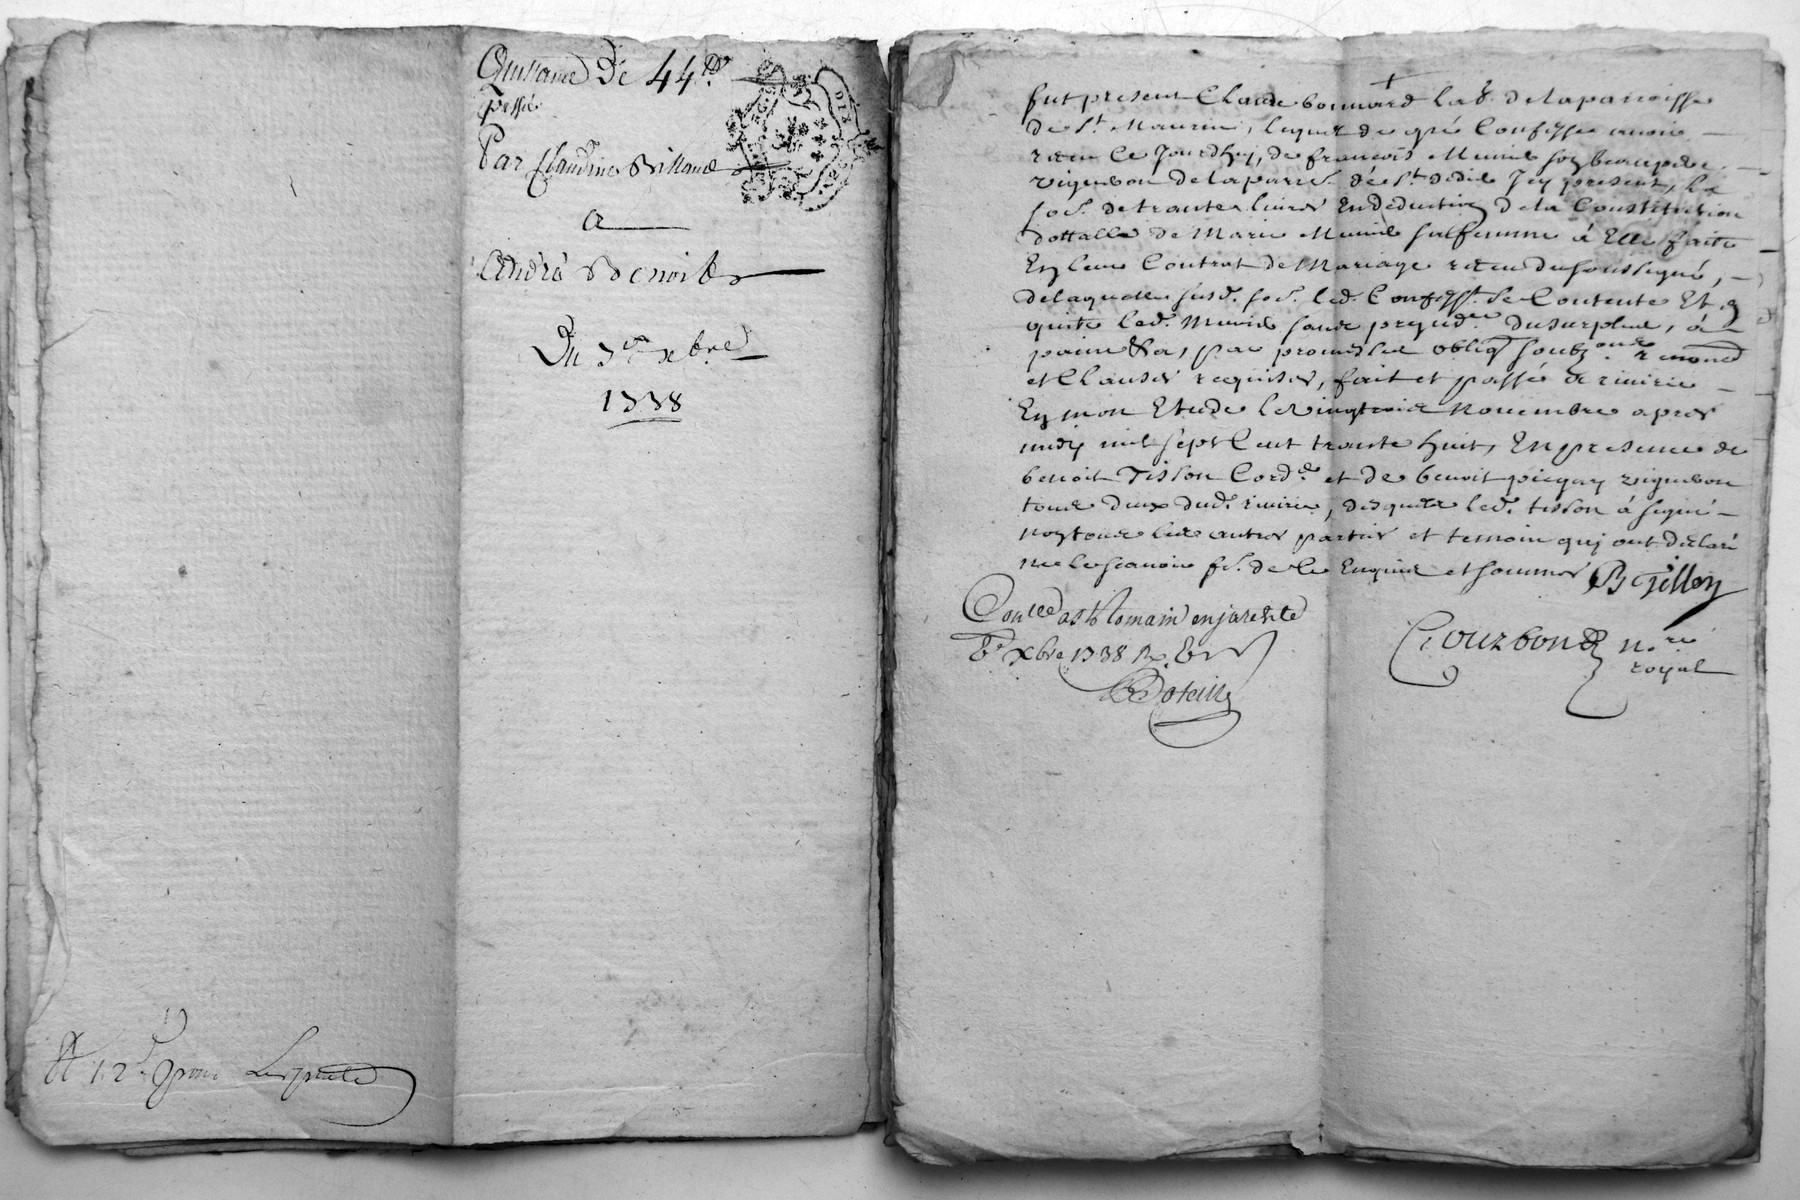 Quittance De 44ᵗᵗ
passé
Par Claudine Billaud
a
André Benoit
Du 3ᵉ xbre
1738
12ˢ pour
fut present Claude bonnard lab. de la parroisse
de St. Maurice, lequel de gré Confesse avoir
receu Ce Jourdhuy, de francois Munie son beaupere
vigneron de la parr. de St. didie Jcy present, la
som. de trante livres En deduction de la Constitution
dottalle de Marie Munie sa femme á Elle faite
En leur Contrat de Mariage receu du soussigné,
de laquelle susd. som. led. Confess. se Contente Et
quitte led. Munie sauf prejud.ce du surplus, á
paine &a, par promesses obliqᵒⁿ soubzᵒⁿˢ renonᵒⁿ
et Clauses requises, fait et passé a riverie
En mon Etude le vingtrois Novembre apres
midy mil sept Cent trante huit, En presence de
benoit Tisson Cord. et de benoit vigneron
tous deux dud. riverie, desquels led. tisson á signé
non tous les autres parties et temoin qui ont declaré
ne le scavoir fe. de ce Enquis et sommes B Tisson
Con.lleé a St Romain en jareste le
8e xbre 1738 R.
Gourbon n.re
royal